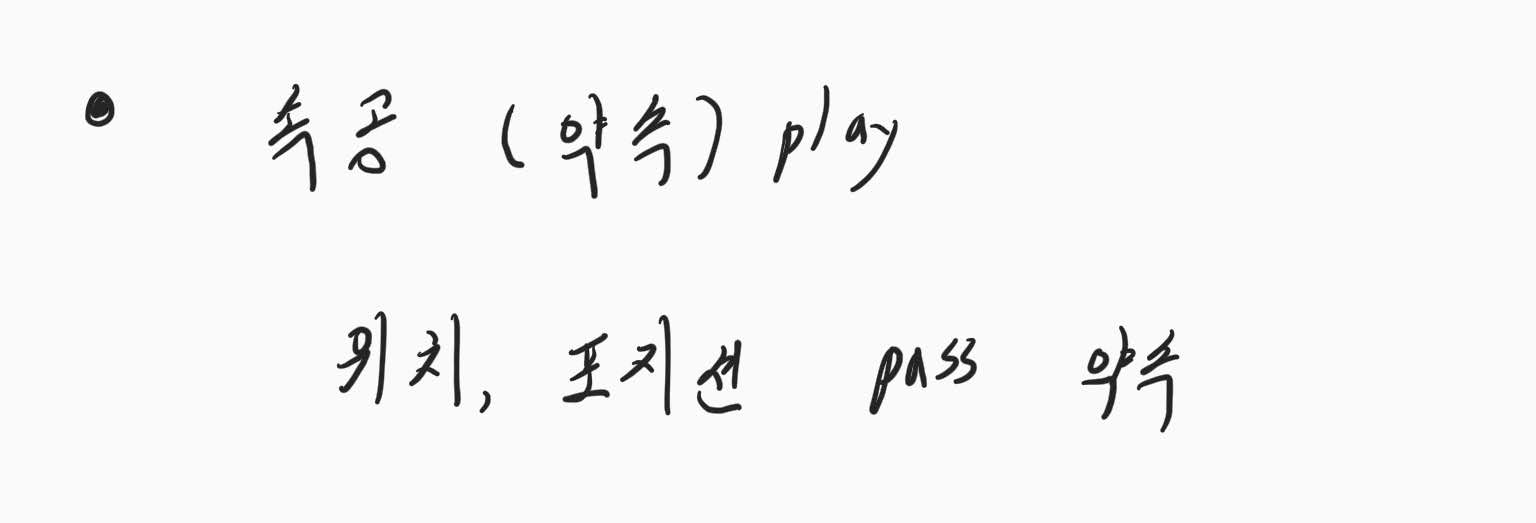 ● 속공 (약속) play
위치, 포지션 pass 약속